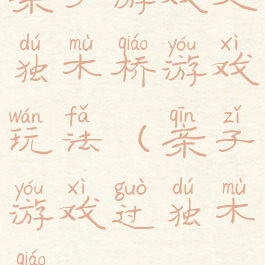 dú mù qiáo yóu xì
独木桥游戏
wán fǎ qīn zǐ
玩法(亲子
yóu xì guò dú mù
游戏过独木
qiáo